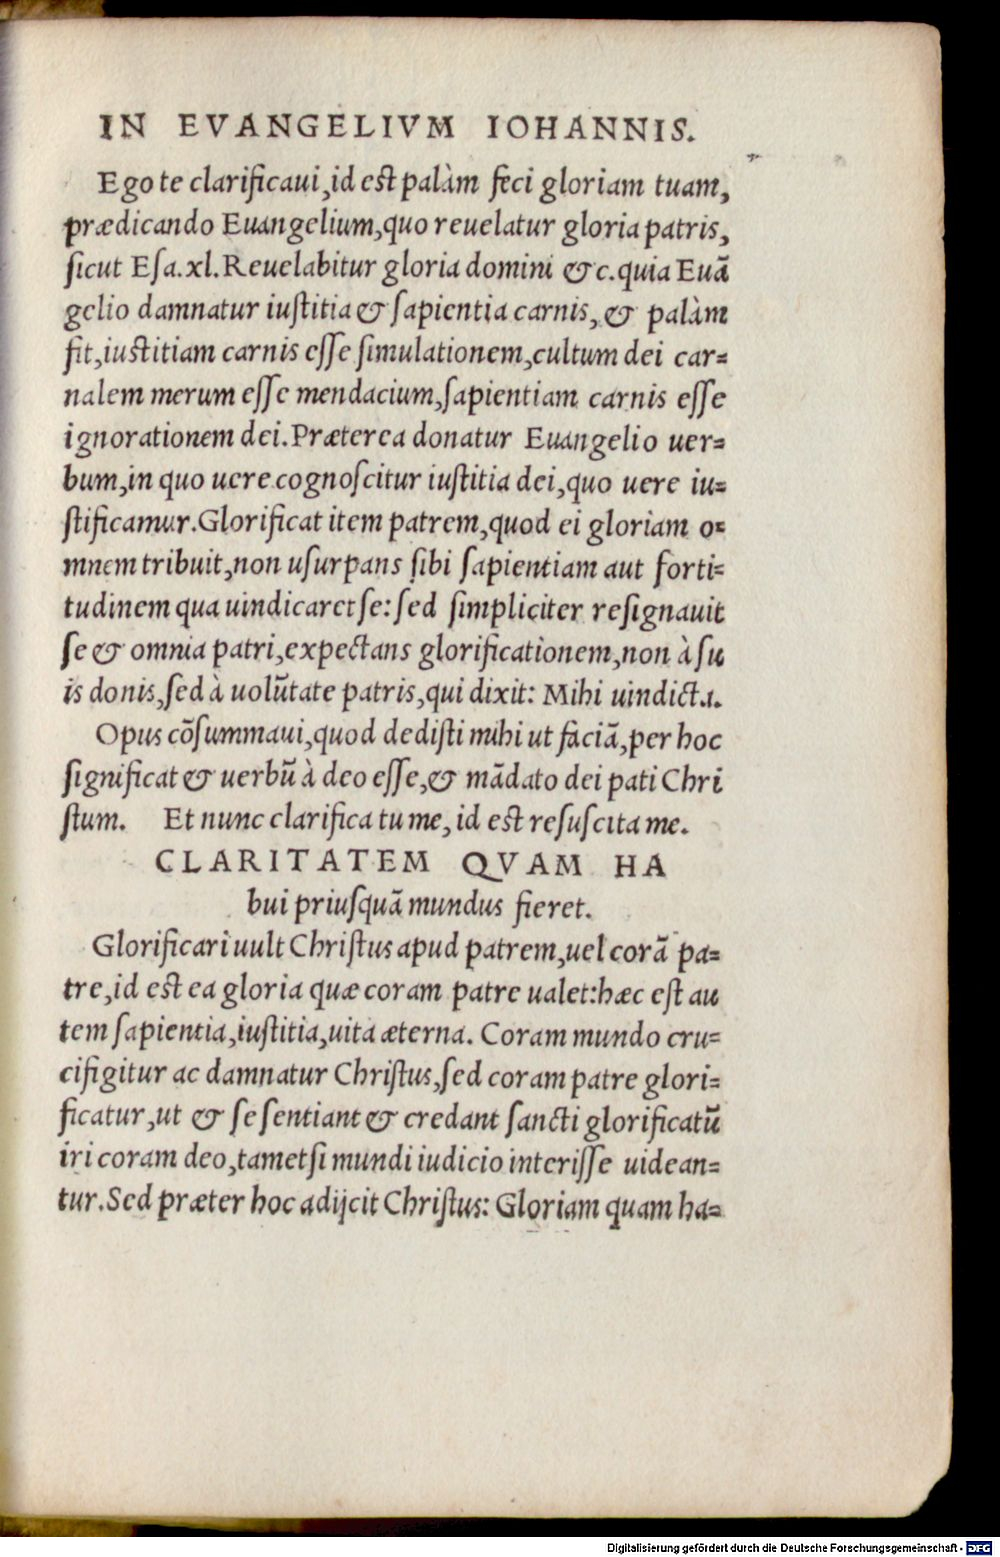 IN EVANGELIVM IOHANNIS.
Ego te clarificaui, id est palàm feci gloriam tuam,
prædicando Euangelium, quo reuelatur gloria patris,
sicut Esa. xl. Reuelabitur gloria domini &c. quia Euã
gelio damnatur iustitia & sapientia carnis, & palàm
fit, iustitiam carnis esse simulationem, cultum dei car=
nalem merum esse mendacium, sapientiam carnis esse
ignorationem dei. Præterea donatur Euangelio uer=
bum, in quo uere cognoscitur iustitia dei, quo uere iu=
stificamur. Glorificat item patrem, quod ei gloriam o=
mnem tribuit, non usurpans sibi sapientiam aut forti=
tudinem qua uindicaret se: sed simpliciter resignauit
se & omnia patri, expectans glorificationem, non à su
is donis, sed à uolũtate patris, qui dixit: Mihi uindicta.
Opus cõsummaui, quod dedisti mihi ut faciã, per hoc
significat & uerbũ à deo esse, & mãdato dei pati Chri
stum. Et nunc clarifica tu me, id est resuscita me.
CLARITATEM QVAM HA
bui priusquã mundus fieret.
Glorificari uult Christus apud patrem, uel corã pa=
tre, id est ea gloria quæ coram patre ualet: hæc est au
tem sapientia, iustitia, uita æterna. Coram mundo cru=
cifigitur ac damnatur Christus, sed coram patre glori=
ficatur, ut & se sentiant & credant sancti glorificatũ
iri coram deo, tametsi mundi iudicio interisse uidean=
tur. Sed præter hoc adijcit Christus: Gloriam quam ha=
Digitalisierung gefördert durch die Deutsche Forschungsgemeinschaft - DFG